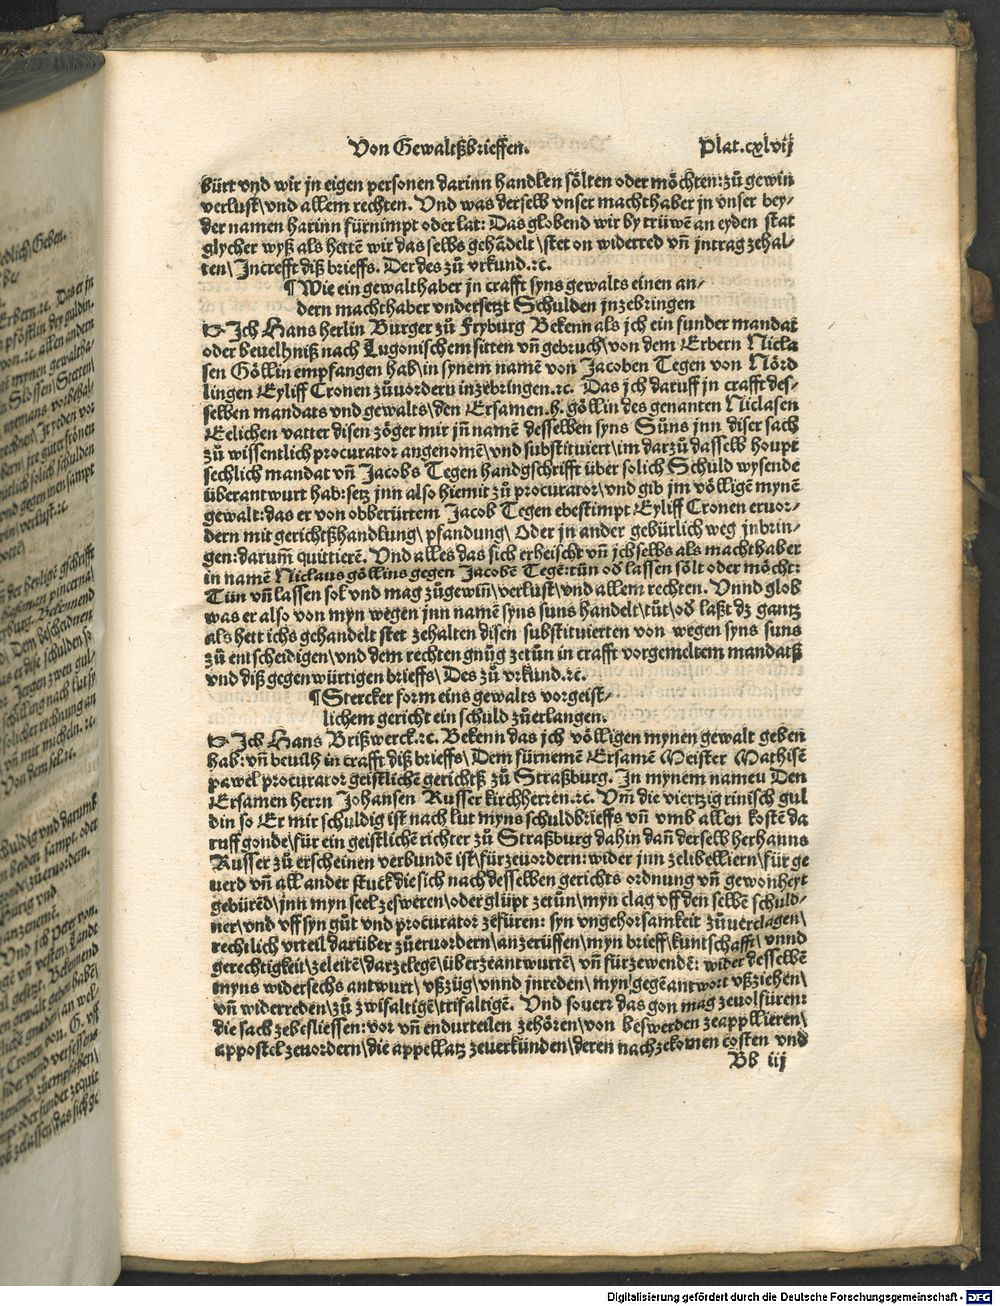 Von Gewaltßbrieffen. Plat.cxlvij
bürt vnd wir jn eigen personen darinn handlen sölten oder möchten: zů gewin
verlust\ vnd allem rechten. Vnd was derselb vnser machthaber jn vnser bey⸗
der namen harinn fürnimpt oder lat: Das globend wir by trüwē an eyden stat
glycher wyß als hettē wir das selbs gehādelt\ stet on widerred vn̄ jntrag zehal⸗
ten\ Jn crefft diß brieffs. Der des zů vrkund.ꝛc.
¶ Wie ein gewalthaber jn crafft syns gewalts einen an⸗
dern machthaber vndersetzt Schulden jnzebringen
☞ Jch Hans herlin Burger zů Fryburg Bekenn als jch ein sunder mandat
oder beuelhniß nach Lugonischem sitten vn̄ gebruch\ von dem Erbern Nicla
sen Göllin empfangen hab\ in synem namē von Jacoben Tegen von Nörd
lingen Eyliff Cronen zůuordern inzebringen.ꝛc. Das jch daruff jn crafft des⸗
selben mandats vnd gewalts\ den Ersamen.h. göllin des genanten Niclasen
Eelichen vatter disen zöger mir jn̄ namē desselben syns Süns jnn diser sach
zů wissentlich procurator angenomē\ vnd substituiert\ im darzů dasselb houpt
sechlich mandat vn̄ Jacobs Tegen handgschrifft über solich Schuld wysende
überantwurt hab: setz jnn also hiemit zů procurator\ vnd gib jm völligē mynē
gewalt: das er von obberürtem Jacob Tegen ebestimpt Eyliff Cronen eruor⸗
dern mit gerichtßhandlung\ pfandung\ Oder jn ander gebürlich weg jnbrin⸗
gen: darum̄ quittierē. Vnd alles das sich erheischt vn̄ jch selbs als machthaber
in namē Niclaus göllins gegen Jacobē Tegē: tůn od̓ lassen sölt oder möcht:
Tůn vn̄ lassen sol vnd mag zůgewin̄\ verlust\ vnd allem rechten. Vnnd glob
was er also von myn wegen jnn namē syns suns handelt\ tůt\ od̓ laßt dz gantz
als hett ichs gehandelt stet zehalten disen substituierten von wegen syns suns
zů entscheidigen\ vnd dem rechten gnůg zetůn in crafft vorgemeltem mandatß
vnd diß gegenwürtigen brieffs\ Des zů vrkūnd.ꝛc.
¶ Stercker form eins gewalts vor geist⸗
lichem gericht ein schuld zůerlangen.
☞ Jch Hans Brißwerck.ꝛc. Bekenn das jch völligen mynen gewalt geben
hab: vn̄ beuilh in crafft diß brieffs\ Dem fürnemē Ersamē Meister Mathisē
pawel procurator geistlichē gerichtß zů Straßburg. Jn mynem nameu Den
Ersamen herrn Johansen Russer kirchherren.ꝛc. Vm̄ die viertzig rinisch gul
din so Er mir schuldig ist nach lut myns schuldbrieffs vn̄ vmb allen kostē da
ruff gonde\ für ein geistlichē richter zů Straßburg dahin dan̄ derselb her hanns
Russer zů erscheinen verbundē ist\ fürzeuordern: wider jnn zelibelliern\ für ge
uerd vn̄ all ander stuck die sich nach desselben gerichts ordnung vn̄ gewonheyt
gebürēd\ jnn myn seel zesweren\ oder glüpt zetůn\ myn clag vff den selbē schuld⸗
ner\ vnd vff syn gůt vnd procurator zefüren: syn vngehorsamkeit zůuerclagen\
rechtlich vrteil darüber zů eruordern\ anzerüffen\ myn brieff\ kuntschafft\ vnnd
gerechtigkeit\ zeleitē\ darzelegē\ überzeantwurtē\ vn̄ fürzewendē: wider desselbē
myns widersechs antwurt\ vßzüg\ vnnd jnreden\ myn gegē antwort vßziehen\
vn̄ widerreden\ zů zwifaltigē\ trifaltigē. Vnd souerr das gon mag zeuolfüren:
die sach zebesliessen: vor vn̄ endurteilen zehören\ von beswerden zeappllieren\
appostel zeuordern\ die appellatz zeuerkünden\ deren nachzekomen costen vnd
Bb iij